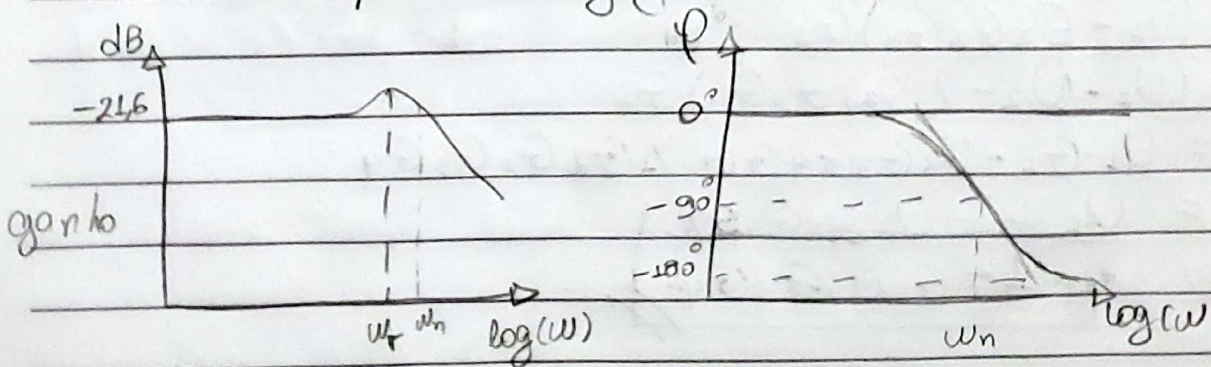 dB
-21,6
ganho
ωr ωn log(ω)
φ
0°
-90°
-180°
ωn
log(ω